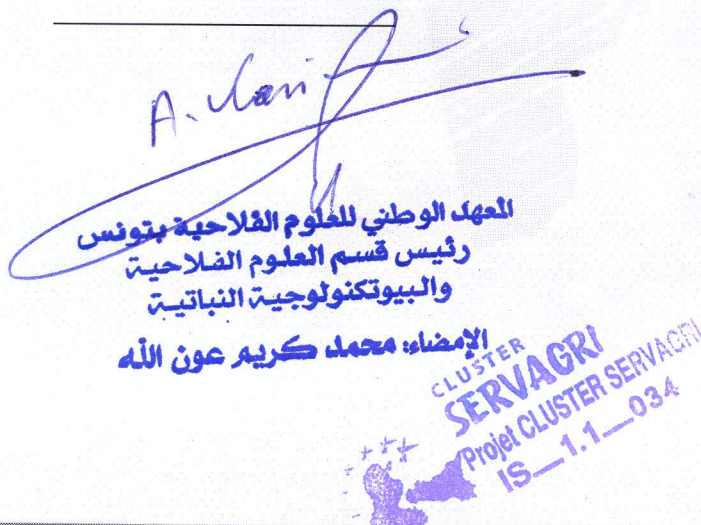 المعهد الوطني للعلوم الفلاحية بتونس
رئيس قسم العلوم الفلاحية
والبيوتكنولوجية النباتية
الإمضاء: محمد كريم عون الله
CLUSTER
SERVAGRI
Projet CLUSTER SERVAGRI
IS_1.1_034